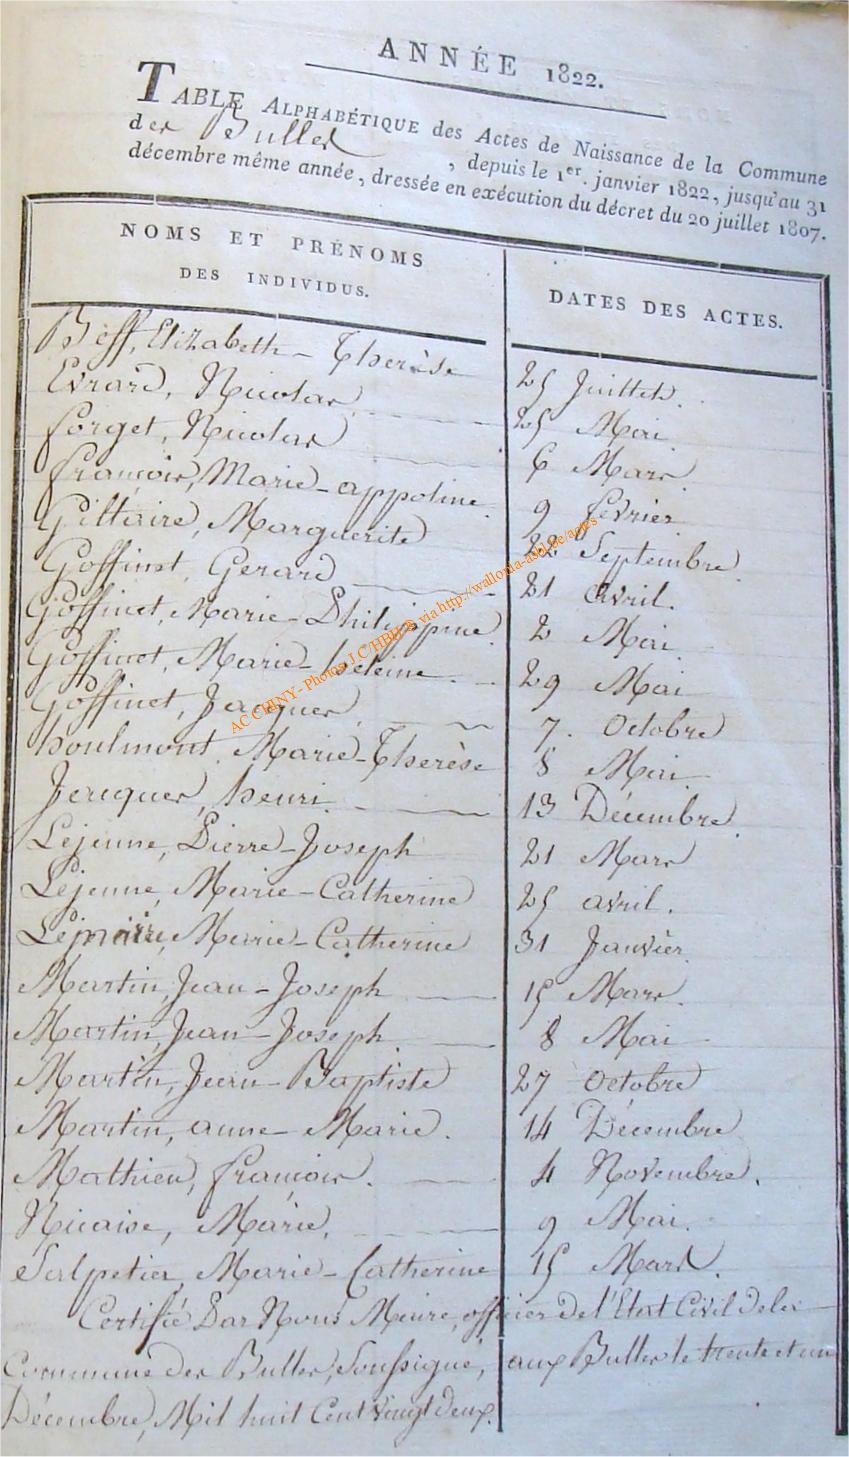 ANNÉE 1822.
TABLE ALPHABÉTIQUE des Actes de Naissance de la Commune
des Bulles, depuis le 1er. janvier 1822, jusqu'au 31
décembre même année, dressée en exécution du décret du 20 juillet 1807.
NOMS ET PRÉNOMS
DES INDIVIDUS.
DATES DES ACTES.
Beff, Elizabeth-Therèse 25 Juillet.
Evrard, Nicolas 25 Mai
forget, Nicolas 6 Mars.
françois, Marie-appoline. 9 fevrier
Giltaire, Marguerite 22 Septembre.
Goffinet, Gerard 21 avril.
Goffinet, Marie-Philippine. 2 Mai
Goffinet, Marie-heleine. 29 Mai
Goffinet, Jacques 7. octobre
houlmont, Marie-Therèse 8 Mai
Jacques, henri 13 Décembre.
Lejeune, Pierre-Joseph 21 Mars
Lejeune, Marie-Catherine 25 avril.
Lemaire, Marie-Catherine 31 Janvier.
Martin, Jean-Joseph 15 Mars.
Martin, Jean-Joseph 8 Mai
Martin, Jean-Baptiste 27 octobre
Martin, anne-Marie. 14 Décembre
Mathieu, françois. 4 Novembre.
Nicaise, Marie. 9 Mai.
Salpetier, Marie-Catherine 15 Mars.
Certifié Par Nous Maire, officier de l'Etat Civil de la
Commune des Bulles, Soussigné, aux Bulles le trente et un
Décembre, Mil huit Cent vingt deux.
AC CHINY - Photos J.C HBILB via http://wallonia-asbl.be/actes